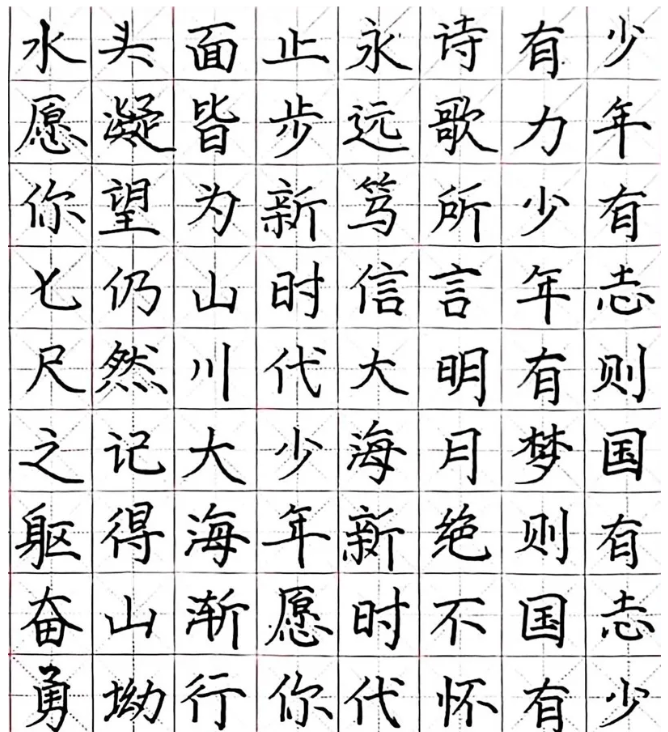 少年有志则国有志少
有力少年有梦则国有
诗歌所言明月绝不怀
永远笃信大海新时代
止步新时代少年愿你
面皆为山川大海渐行
头凝望仍然记得山坳
水愿你七尺之躯奋勇